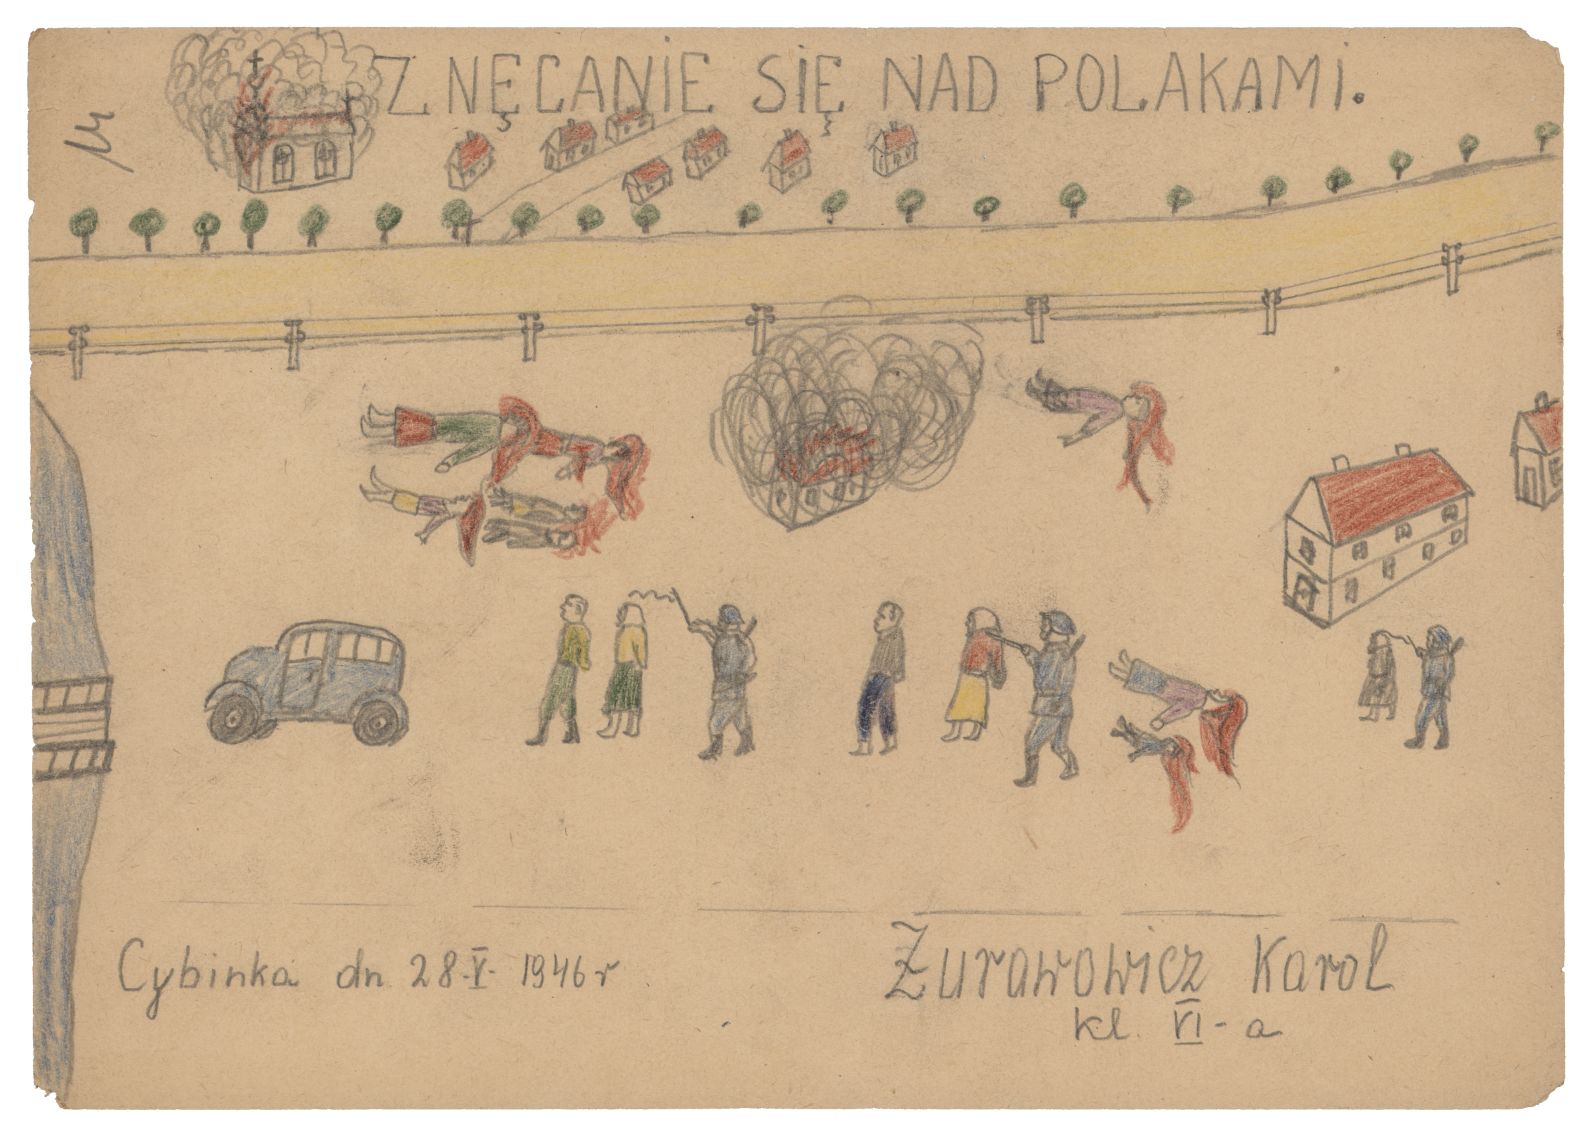 ZNĘCANIE SIĘ NAD POLAKAMI.
Cybinka dn 28-V- 1946 r
Żurawowicz Karol
kl. VI-a